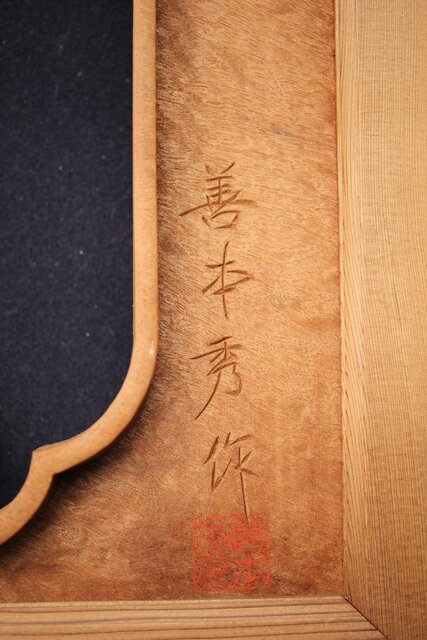 善本秀作